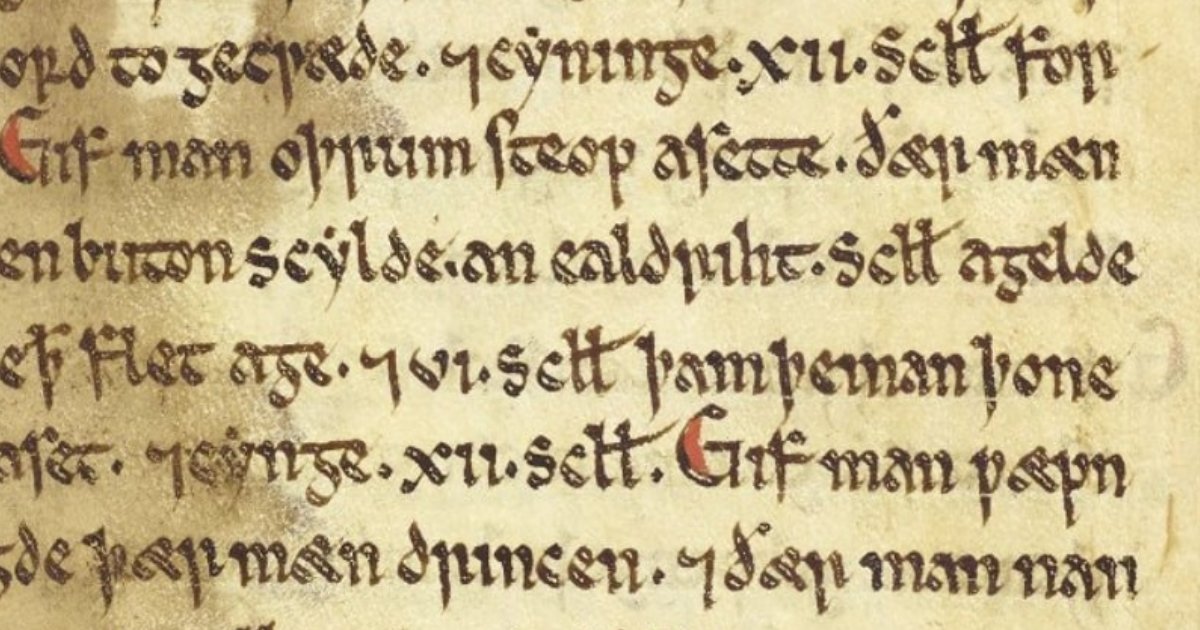 ord to gecƿæde. ⁊ cyninge. xii. scll for
Gif man oþrum steop asette. ðær mæn
en buton scylde. an ealdriht. scll agelde
e ꝥ flet age. ⁊ vi. scll þam þe man þone
aset. ⁊ cynge. xii. scll. Gif man ƿæpn
gde þær mæn drincen. ⁊ ðær man nan